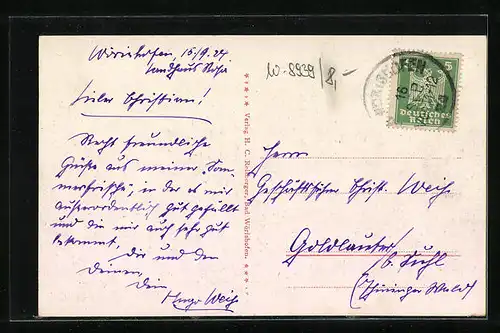 Wörishofen, 15/9. 24
Landhaus Rosa
Lieber Christian!
Recht freundliche
Grüße aus meiner Som-
merfrische, in der es mir
außerordentlich gut gefällt
und die mir auch sehr gut
bekommt,
Dir und den
Deinen,
Dein
Hugo Weih
Verlag H. C. Bad Wörishofen.
W-8939/8,-
WÖRISHOFEN
16
5
Deutsches
Reich
Herrn
Geschäftsführer Christ. Weih
Goldlauter
b. Suhl
(Thüringer Wald)